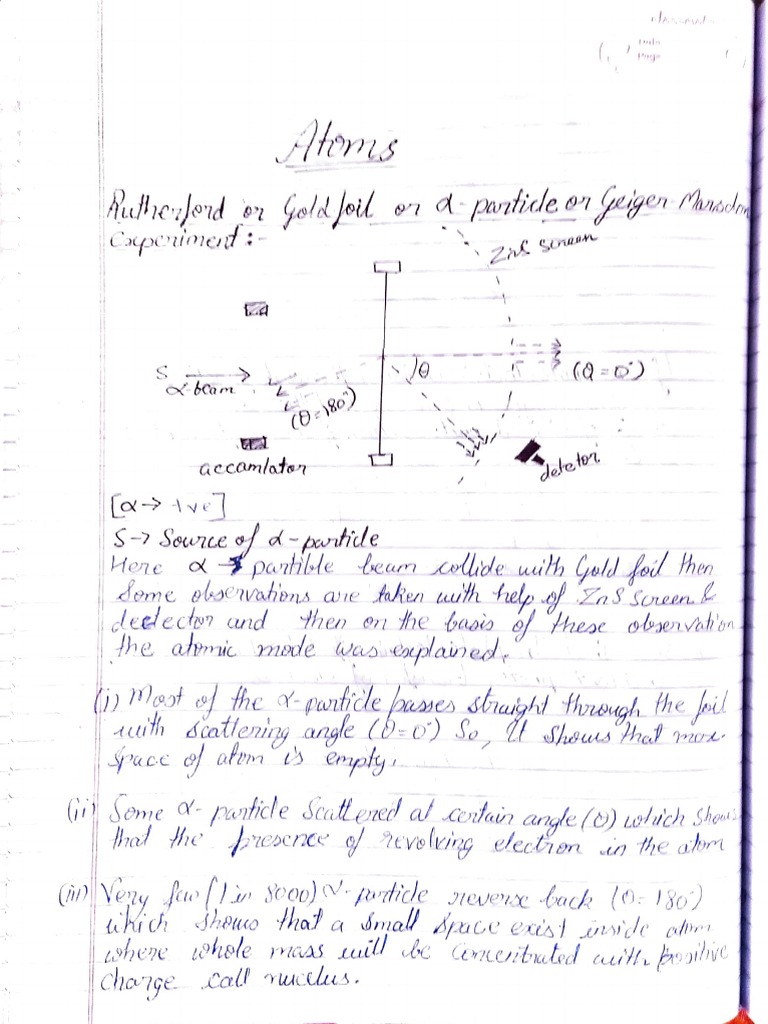 Atoms
Rutherford or Gold foil or α-particle or Geiger Marsdon
Experiment:-
ZnS screen
S
α-beam
(θ=180°)
θ
(θ=0°)
accamlator
detetor
[α→ +ve]
S→ Source of α-particle
Here α → partible beam collide with Gold foil then
Some observations are taken with help of ZnS Screen &
dectector and then on the basis of these observation
the atomic mode was explained.
(i) Most of the α-particle passes straight through the foil
with scattering angle (θ=0°) So, It shows that max.
space of atom is empty.
(ii) Some α-particle Scattered at certain angle (θ) which shows
that the presence of revolving electron in the atom
(iii) Very few (1 in 8000) α-particle reverse back (θ=180°)
which shows that a small space exist inside atom
where whole mass will be concentrated with positive
charge call nucelus.